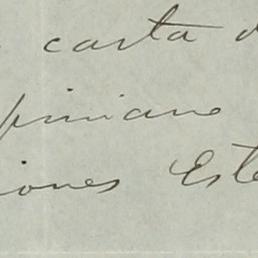 carta d
piniano
iones Este